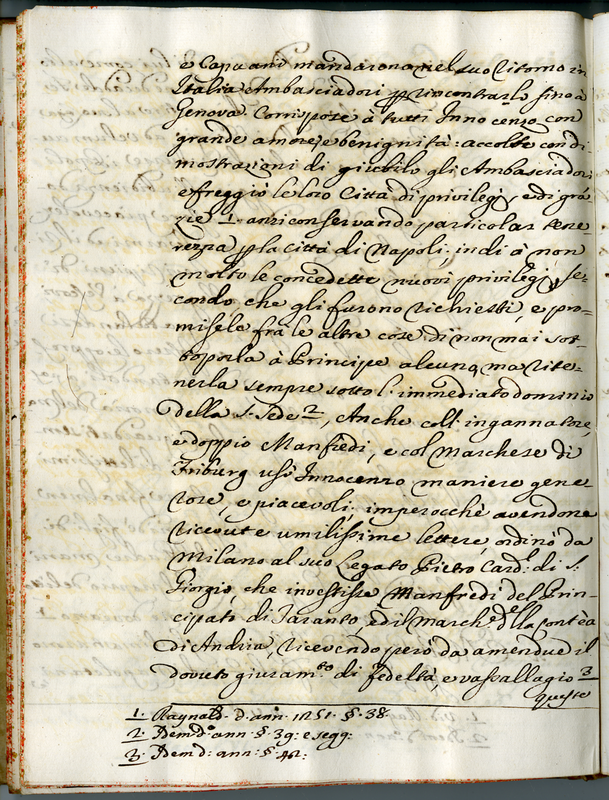 e Capuani mandarono nel suo ritorno in
Italia Ambasciadori p rincontrarlo fino à
Genova. Corrispose à tutti Innocenzo con
grande amore, e benignità: accolse con di
mostrazioni di giubilo gli Ambasciadori
e freggiò le loro Città di privilegj, e di gra
zie 1. anzi conservando particolar tene
rezza p la Città di Napoli, indi à non
molto le concedette nuovi privilegj, se=
condo che gli furono richiesti, e pro=
misela frà le altre cose di non mai sot=
toporla à Principe alcuno, ma rite=
nerla sempre sotto l'immediato dominio
della S. Sede 2, Anche coll'ingannatore,
e doppio Manfredi, e col Marchese di
Friburg usò Innocenzo maniere gene
rose, e piacevoli. imperocchè avendone
ricevute umilissime lettere, ordinò da
Milano al suo Legato Pietro Card: di S.
Giorgio, che investisse Manfredi del Prin=
cipato di Taranto, ed il March: della Contèa
di Andria, ricevendo però da amendue il
dovuto giuram.to di fedeltà, e vassallagio 3
queste
1. Raynald. d. ann. 1251. §. 38.
2. Idem d.o ann. §. 39: e segg:
3. Idem d: ann: §. 42: